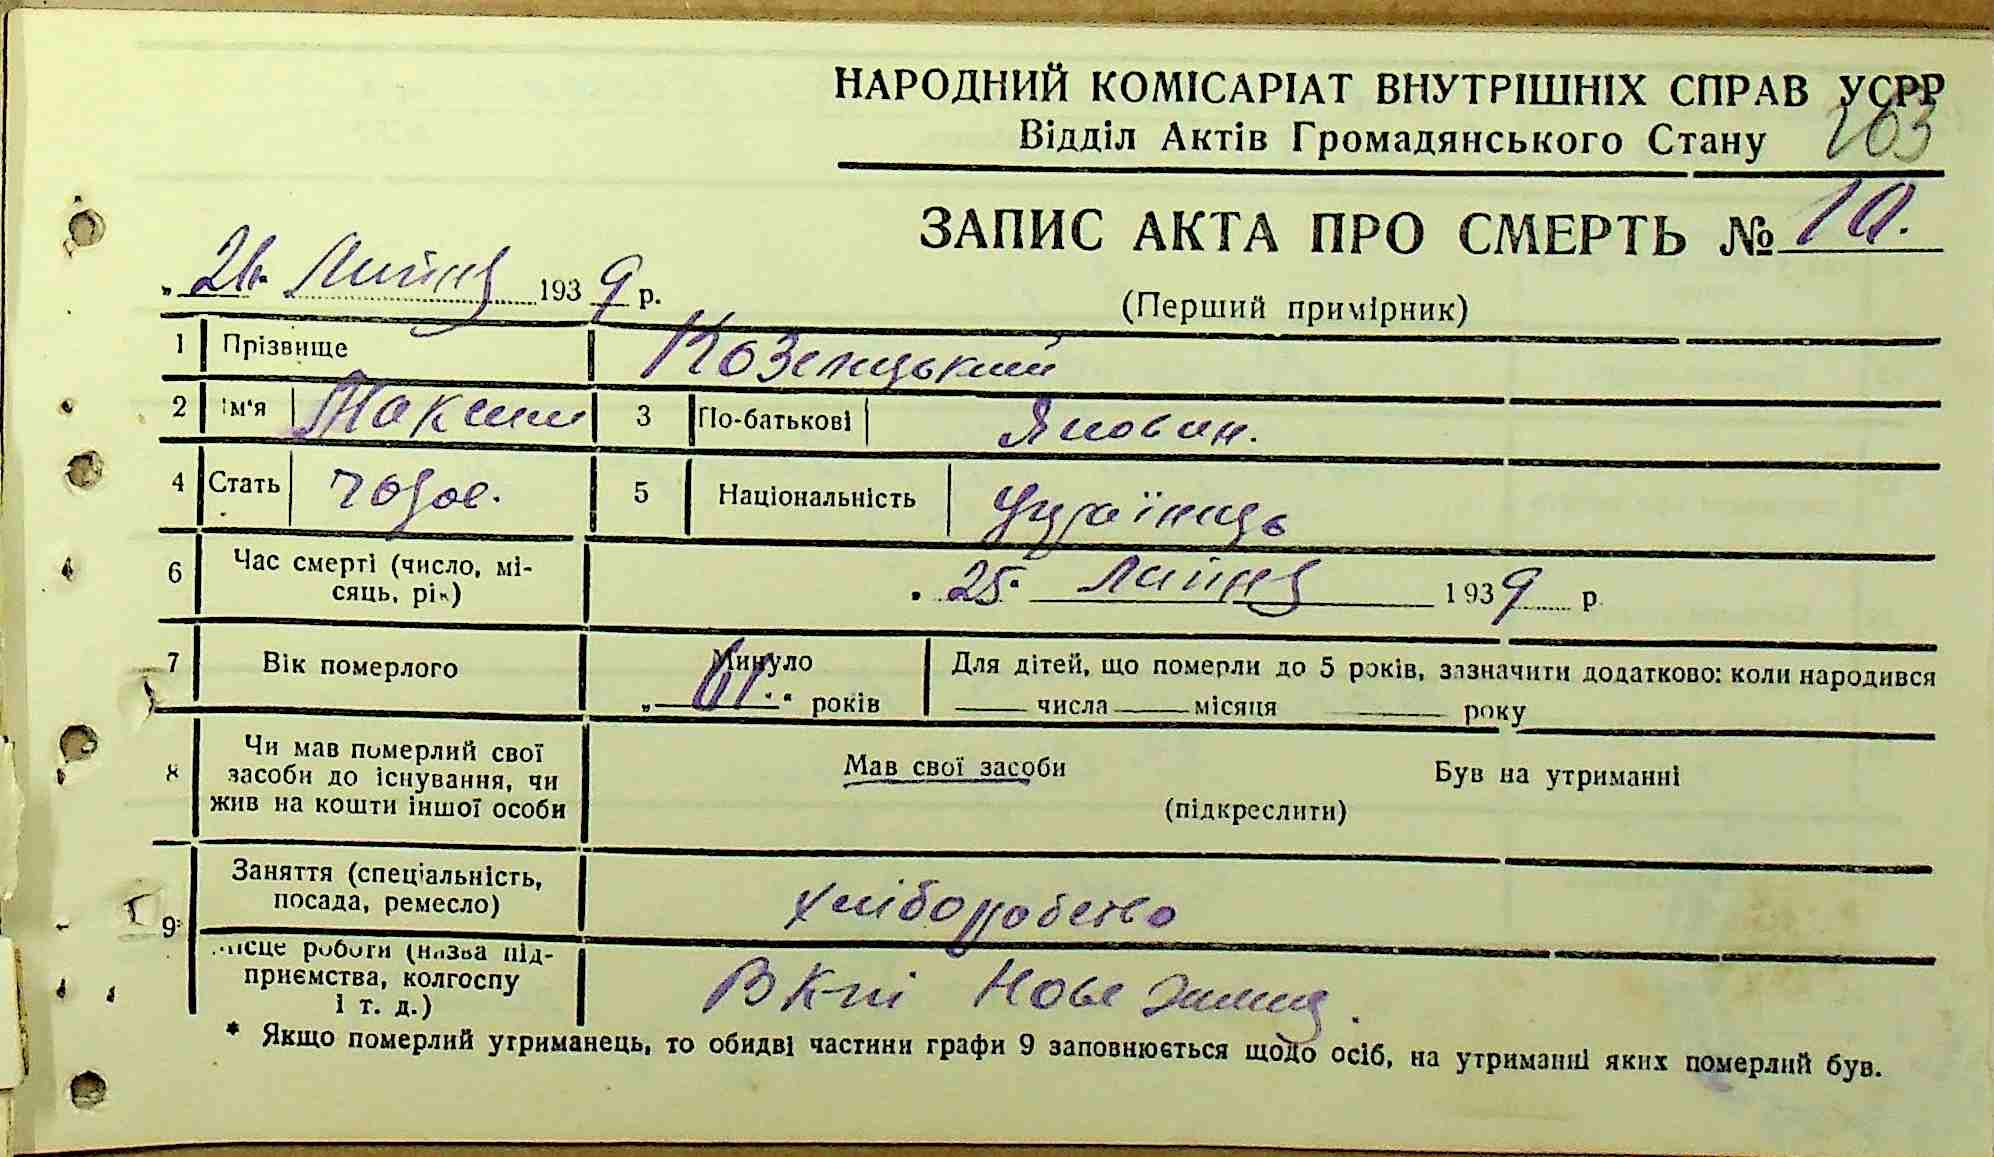 НАРОДНИЙ КОМІСАРІАТ ВНУТРІШНІХ СПРАВ УСРР
Відділ Актів Громадянського Стану 263
ЗАПИС АКТА ПРО СМЕРТЬ № 10.
„26. Липня 1939 р.
(Перший примірник)
1 Прізвище Козелицький
2 Ім'я Максим 3 По-батькові
4 Стать чолов. 5 Національність Українець
6 Час смерті (число, мі-
сяць, рік) 25. Липня 1939 р.
7 Вік померлого Минуло Для дітей, що померли до 5 років, зазначити додатково: коли народився
„61.“ років числа місяця року
8 Чи мав померлий свої
засоби до існування, чи
жив на кошти іншої особи
Мав свої засоби Був на утриманні
(підкреслити)
9* Заняття (спеціальність,
посада, ремесло) хліборобство
Місце роботи (назва під-
приємства, колгоспу
і т. д.) В К-пі Нове
* Якщо померлий утриманець, то обидві частини графи 9 заповнюється щодо осіб, на утриманні яких померлий був.